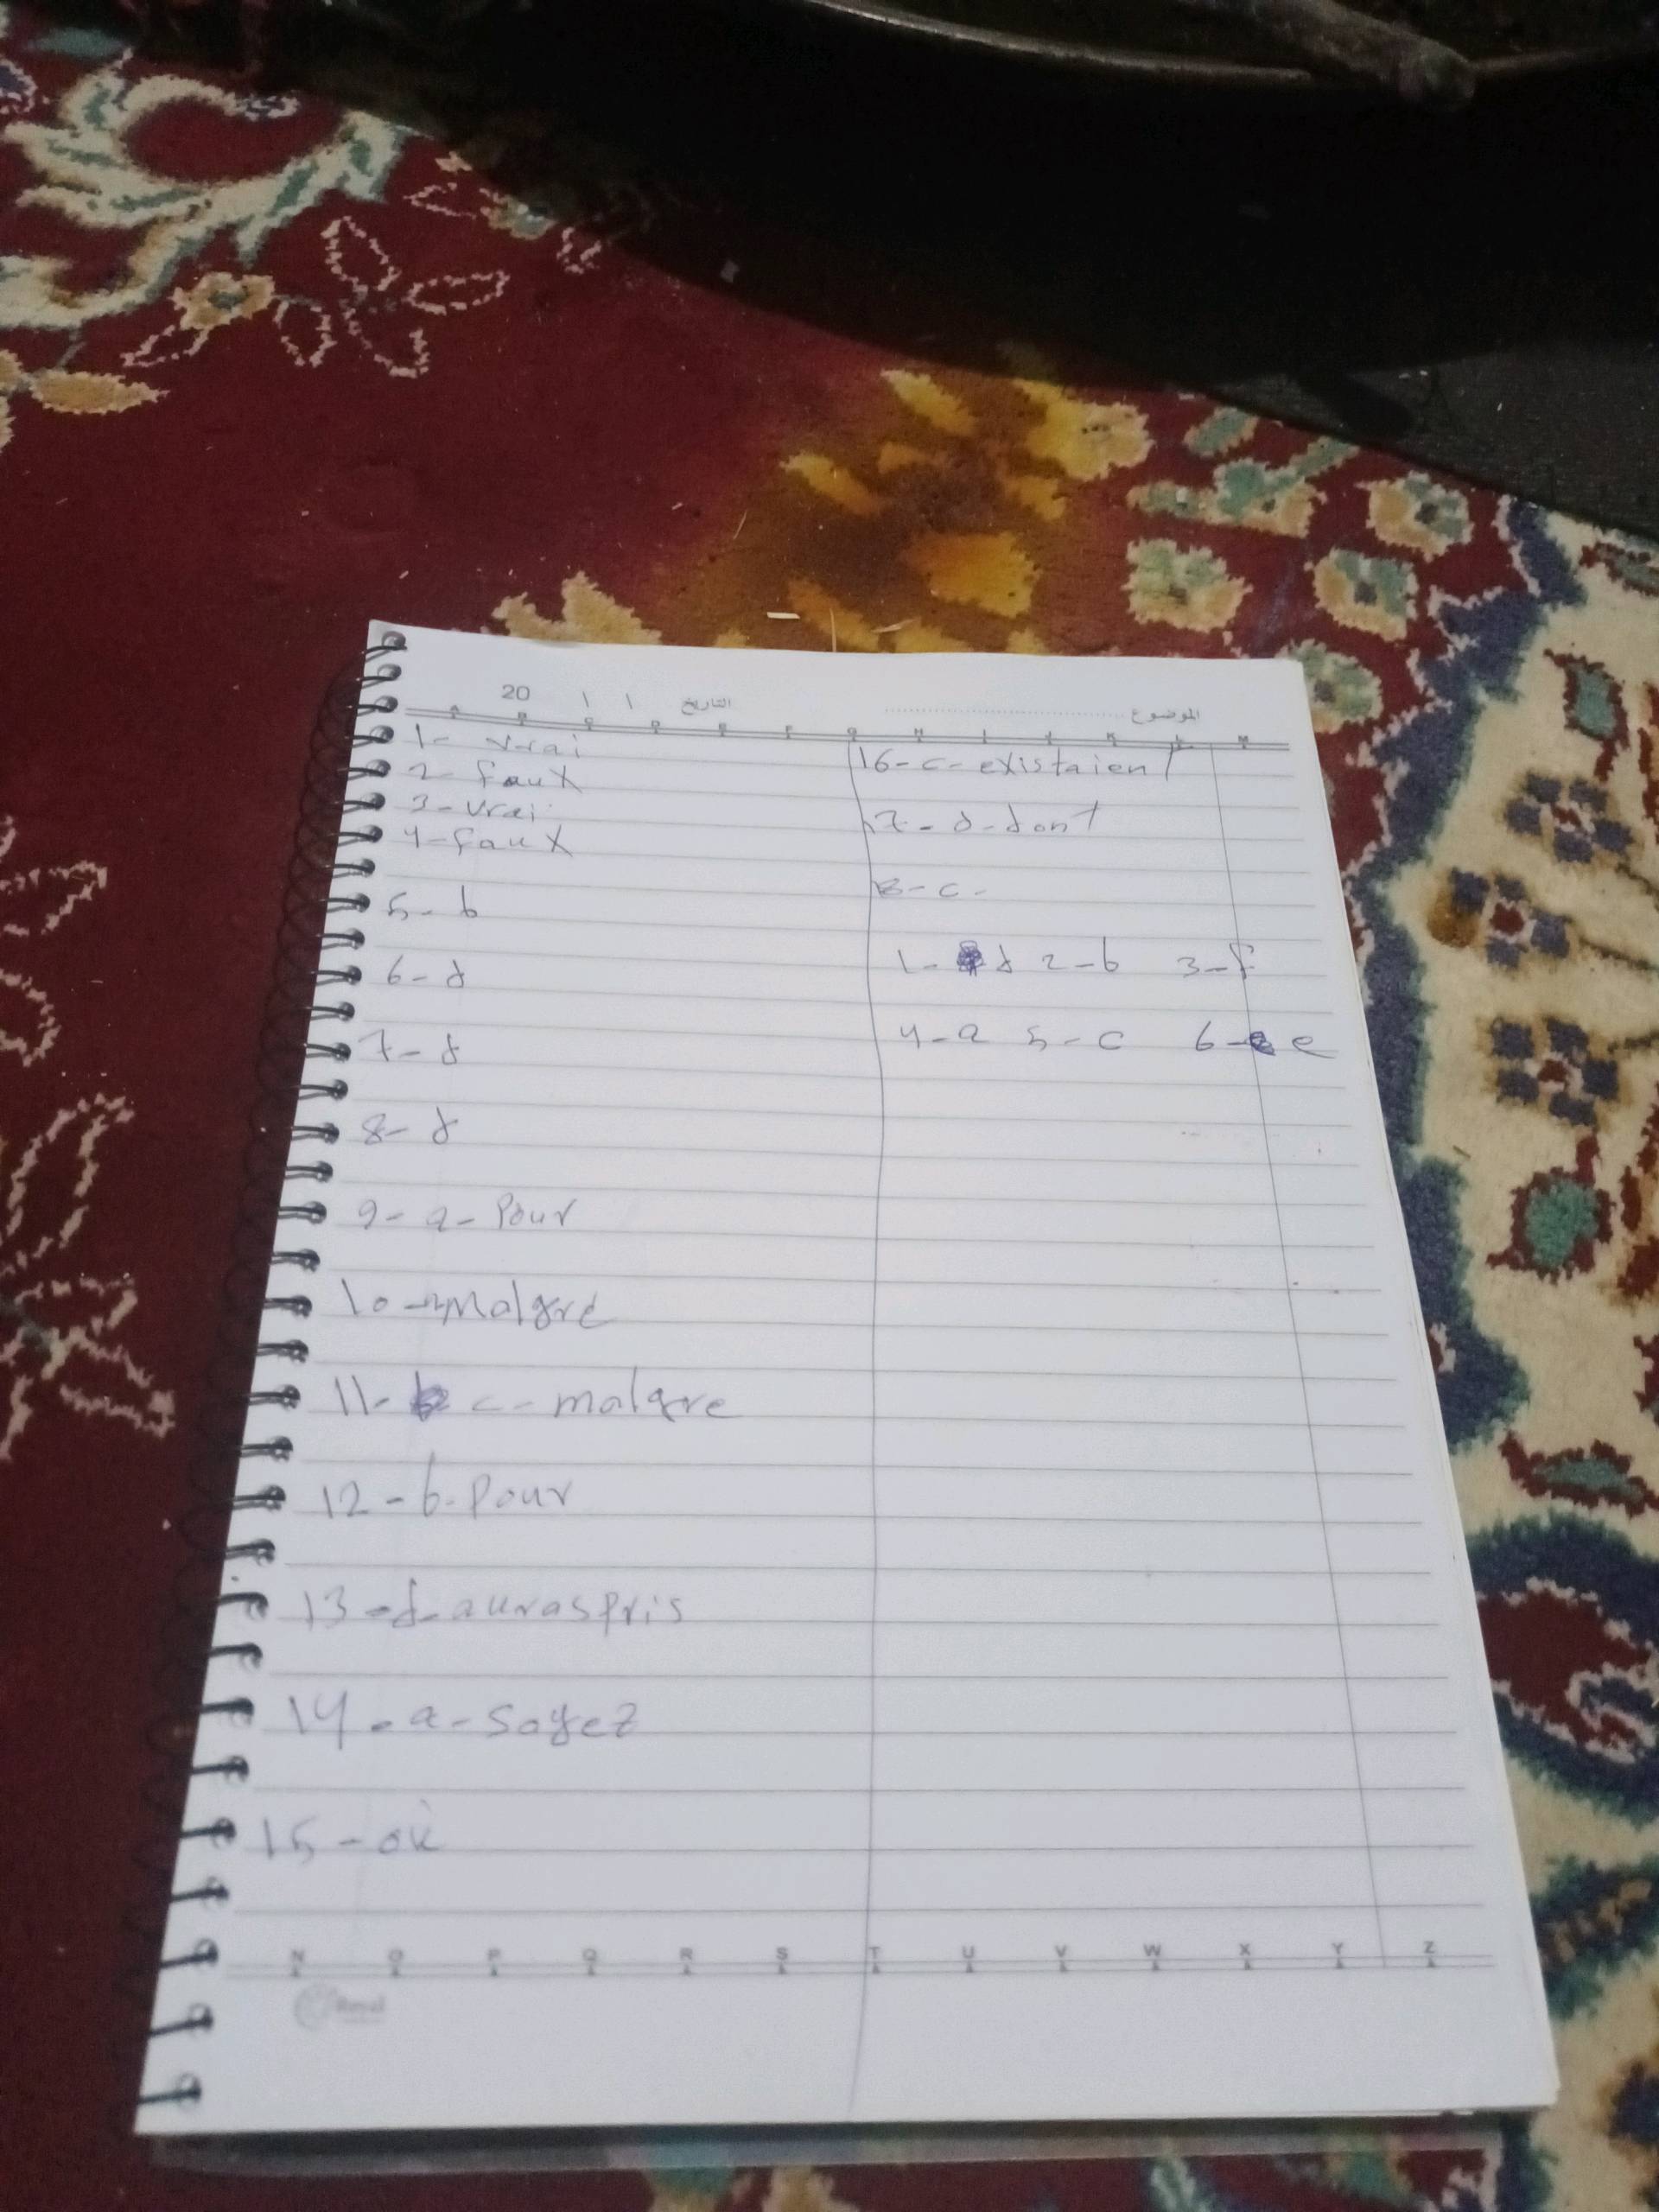 الموضوع
التاريخ / / 20
A B C D E F G H I J K L M
1- vrai
2- faux
3- vrai
4- faux
5- b
6- d
7- d
8- d
9- a- Pour
10- malgré
11- c- malgre
12- b. Pour
13- d- auras pris
14- a- soyez
15- où
16- c- existaient
17- d- dont
18- c-
1- d 2- b 3- f
4- a 5- c 6- e
N O P Q R S T U V W X Y Z